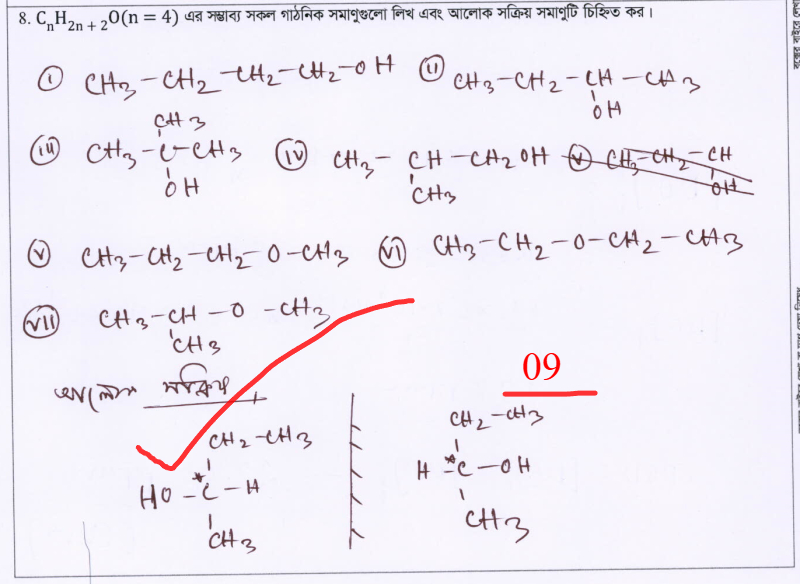 8. CₙH₂ₙ₊₂O(n = 4) এর সম্ভাব্য সকল গাঠনিক সমাণুগুলো লিখ এবং আলোক সক্রিয় সমাণুটি চিহ্নিত কর।
(i) CH3-CH2-CH2-CH2-OH (ii) CH3-CH2-CH-CH3
OH
CH3
(iii) CH3-C-CH3 (iv) CH3-CH-CH2OH (v) CH3-CH2-CH
OH CH3 OH
(v) CH3-CH2-CH2-O-CH3 (vi) CH3-CH2-O-CH2-CH3
(vii) CH3-CH-O-CH3
CH3
09
আলোক সক্রিয়
CH2-CH3 CH2-CH3
HO-*C-H H-*C-OH
CH3 CH3